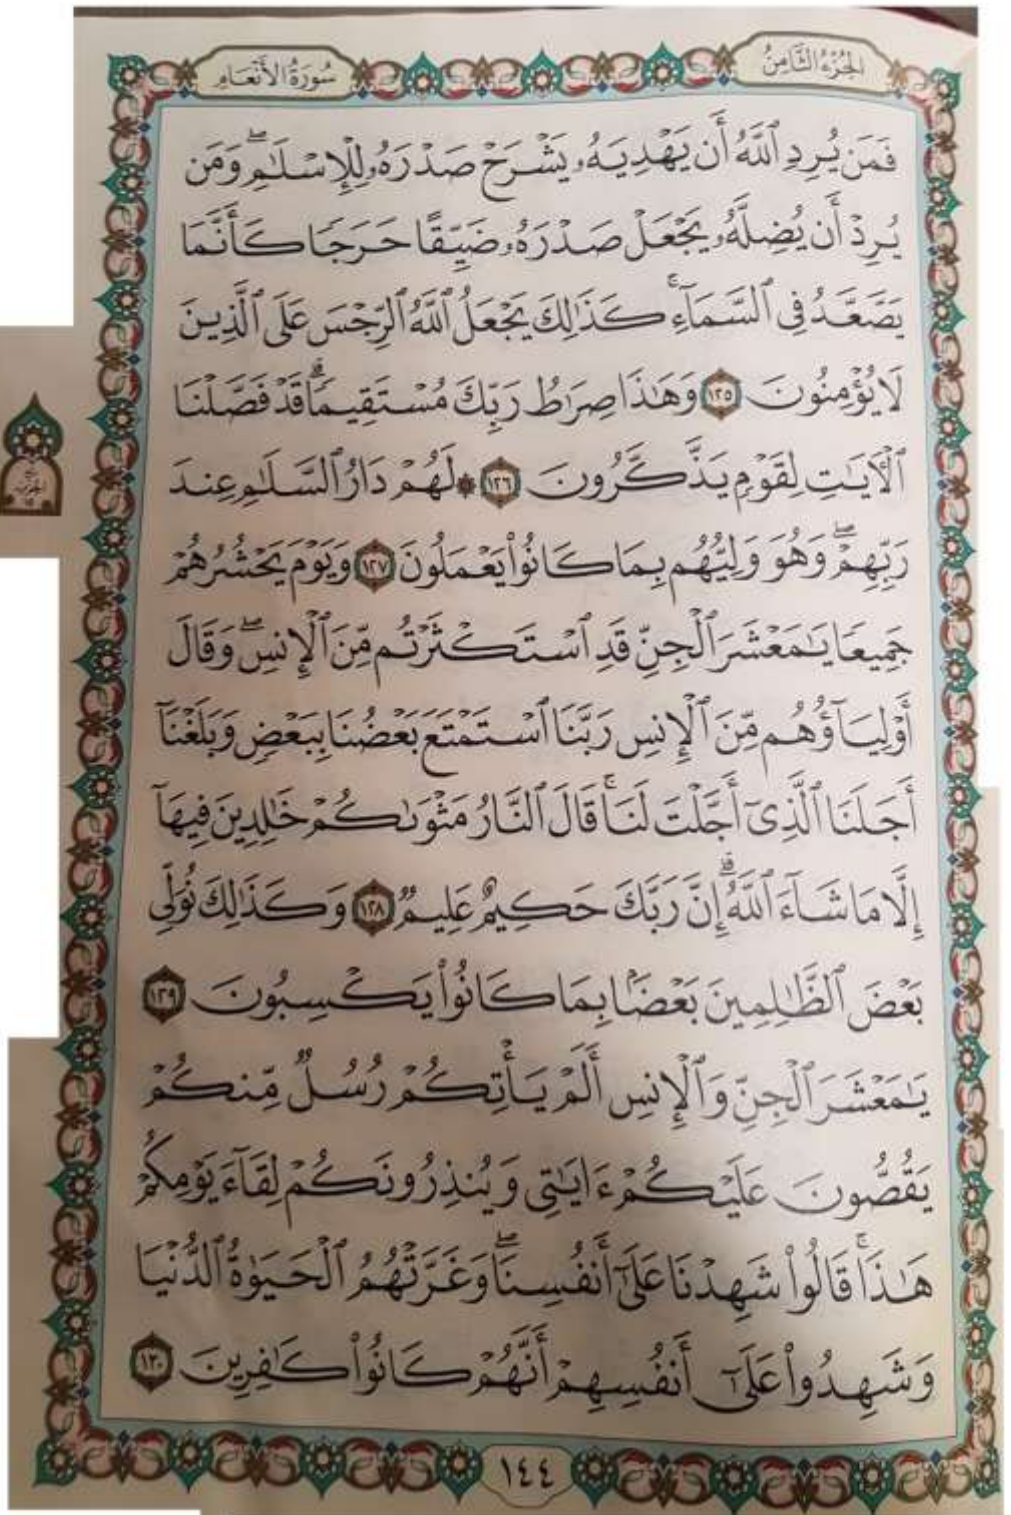 الجزء الثامن
سورة الأنعام
فَمَن يُرِدِ ٱللَّهُ أَن يَهْدِيَهُۥ يَشْرَحْ صَدْرَهُۥ لِلْإِسْلَـٰمِ ۖ وَمَن
يُرِدْ أَن يُضِلَّهُۥ يَجْعَلْ صَدْرَهُۥ ضَيِّقًا حَرَجًا كَأَنَّمَا
يَصَّعَّدُ فِى ٱلسَّمَآءِ ۚ كَذَٰلِكَ يَجْعَلُ ٱللَّهُ ٱلرِّجْسَ عَلَى ٱلَّذِينَ
لَا يُؤْمِنُونَ ١٢٥ وَهَـٰذَا صِرَٰطُ رَبِّكَ مُسْتَقِيمًا ۗ قَدْ فَصَّلْنَا
ٱلْـَٔايَـٰتِ لِقَوْمٍ يَذَّكَّرُونَ ١٢٦ ۞ لَهُمْ دَارُ ٱلسَّلَـٰمِ عِندَ
رَبِّهِمْ ۖ وَهُوَ وَلِيُّهُم بِمَا كَانُوا۟ يَعْمَلُونَ ١٢٧ وَيَوْمَ يَحْشُرُهُمْ
جَمِيعًا يَـٰمَعْشَرَ ٱلْجِنِّ قَدِ ٱسْتَكْثَرْتُم مِّنَ ٱلْإِنسِ ۖ وَقَالَ
أَوْلِيَآؤُهُم مِّنَ ٱلْإِنسِ رَبَّنَا ٱسْتَمْتَعَ بَعْضُنَا بِبَعْضٍ وَبَلَغْنَآ
أَجَلَنَا ٱلَّذِىٓ أَجَّلْتَ لَنَا ۚ قَالَ ٱلنَّارُ مَثْوَىٰكُمْ خَـٰلِدِينَ فِيهَآ
إِلَّا مَا شَآءَ ٱللَّهُ ۗ إِنَّ رَبَّكَ حَكِيمٌ عَلِيمٌ ١٢٨ وَكَذَٰلِكَ نُوَلِّى
بَعْضَ ٱلظَّـٰلِمِينَ بَعْضًۢا بِمَا كَانُوا۟ يَكْسِبُونَ ١٢٩
يَـٰمَعْشَرَ ٱلْجِنِّ وَٱلْإِنسِ أَلَمْ يَأْتِكُمْ رُسُلٌ مِّنكُمْ
يَقُصُّونَ عَلَيْكُمْ ءَايَـٰتِى وَيُنذِرُونَكُمْ لِقَآءَ يَوْمِكُمْ
هَـٰذَا ۚ قَالُوا۟ شَهِدْنَا عَلَىٰٓ أَنفُسِنَا ۖ وَغَرَّتْهُمُ ٱلْحَيَوٰةُ ٱلدُّنْيَا
وَشَهِدُوا۟ عَلَىٰٓ أَنفُسِهِمْ أَنَّهُمْ كَانُوا۟ كَـٰفِرِينَ ١٣٠
١٤٤